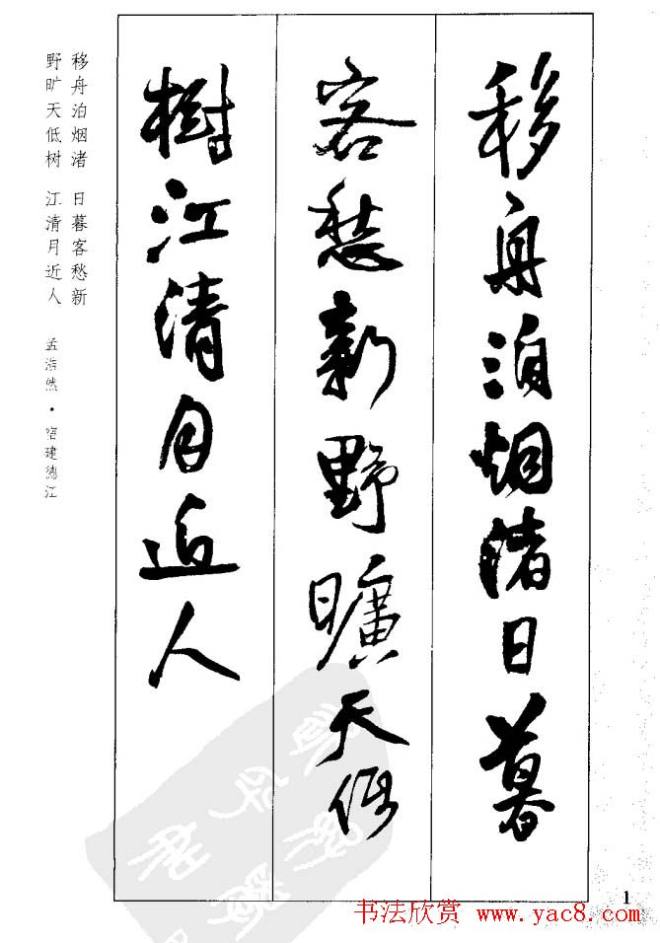 移舟泊烟渚日暮
客愁新野曠天低
樹江清月近人
移舟泊烟渚 日暮客愁新
野旷天低树 江清月近人 孟浩然·宿建德江
1
书法欣赏 www.yac8.com